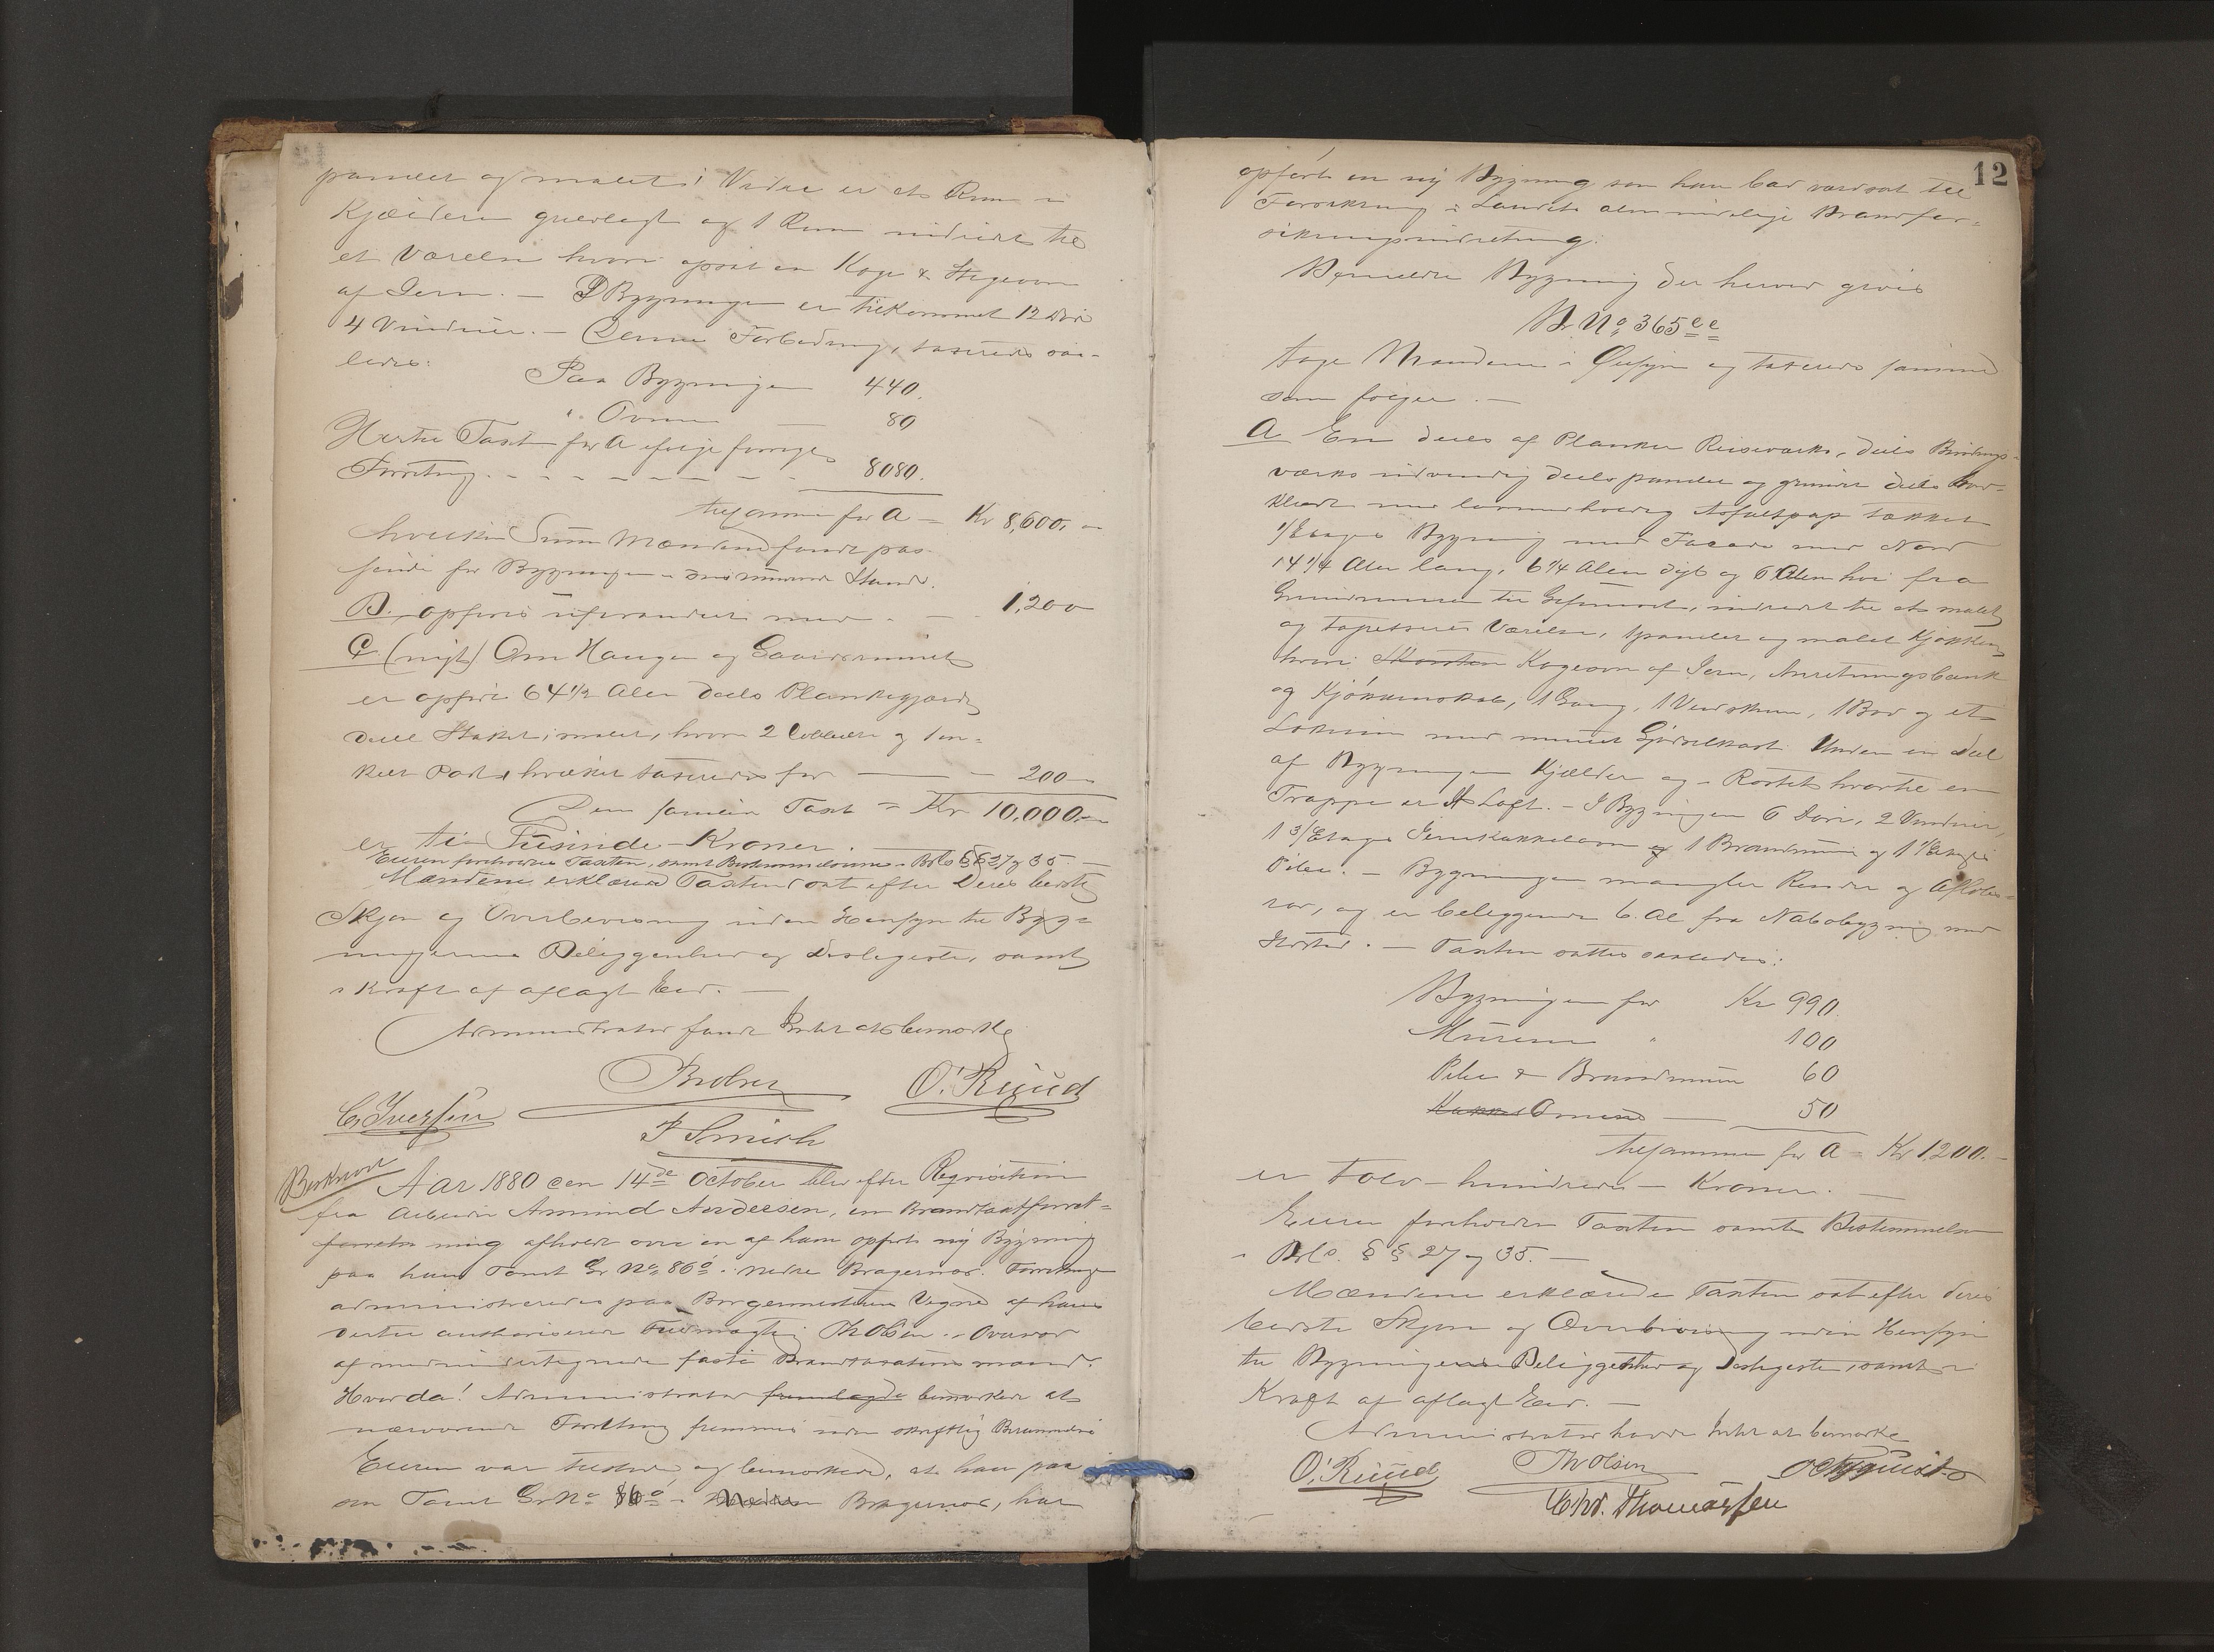 panelet og malet; Videre er et Rum i
Kjælderen gulvlagt og 1 Rum indredet til
et Værelse hvori opsat en Koge & Stegeovn
af Jern. — I Bygningen er tilkommet 12 Døre
4 Vinduer. — Denne Forbedring, taxeredes saa-
ledes:
Paa Bygningen 440.
" Ovnen — 80
Hertil Taxt for A ifølge forrige
Forretning. - - - - - - - 8080.
tilsammen for A = Kr 8,600. -
hvilken Sum Mændene fandt pas-
sende for Bygningen i dens nuværende Stand.
B. opføres uforandret med . — 1,200
C. (nyt) Om Haugen og Gaardsrummet
er opført 64 1/2 Alen deels Plankegjærde
deels Stakit, malet, hvori 2 dobbelte og 1 en-
kelt Port, hvilket taxeredes for — — 200 -
Den samlede Taxt = Kr 10,000. -
er ti - Tusinde - Kroner. —
Eieren foreholdtes Taxten, samt Bestemmelserne i Brl. §§ 27 og 35. —
Mændene erklærede Taxten sat efter Deres bedste
Skjøn og Overbeviisning uden Hensyn til Byg-
ningernes Beliggenhed og Desligeste, samt
i Kraft af aflagt Eed. —
Administrator fandt Intet at bemærke
O. Ruud
C. Iversen
F Smith
Beskrevet
Aar 1880 den 14de October blev efter Requisition
fra Arbeider Amund Andersen, en Brandtaxtforret-
forretn ning afholdt over en af ham opført ny Bygning
paa hans Tomt Gr No 86d i nedre Bragernæs. Forretningen
administreredes paa Borgermesterens Vegne af hans
dertil authoriserede Fuldmægtig Th Olsen. - Overvær
af medundertegnede faste Brandtaxationsmænd.
Hvorda! Administrator fremlagde bemærkede at
nærværende Forretning fremmes uden skriftlig Berammelse
Eieren var tilstede og bemærkede, at han paa
sin Tomt Gr No 86d i Nedre Bragernæs, har
12
opført en ny Bygning som han bad værdsat til
Forsikring i Landets almindelige Brandfor-
sikringsindretning.
Bemeldte Bygning der herved gives
Br No 365ee
toge Mændene i Øiesyn og taxeredes samme
som følger. —
A En deels af Planker Reisværks, deels Bindings-
værks indvendig deels panelet og grundet deels bord-
klædt med Asfaltpap tækket
1/Etages Bygning med Facade mod Nord
14 1/4 Alen lang, 6 1/4 Alen dyb og 6 Alen høi fra
Grundmuren til Gesimset, indredet til et malet
og tapetseret Værelse, 1 panelet og malet Kjøkken
hvori Skorsten Kogeovn af Jern, Anretningsbænk
og Kjøkkenskab, 1 Gang, 1 Vedskuur, 1 Bod og et
Lokum med muret Gjødselkast. Under en Deel
af Bygningen Kjælder og i Røstet hvortil en
Trappe er et Loft. — I Bygningen 6 Døre, 2 Vinduer,
1 3/Etages Jernkakkelovn og 1 Brandmuur og 1 1/Etages
Pibe. — Bygningen mangler Render og Afløbs-
rør, og er beliggende 6. Al fra Nabobygning mod
— Taxten sattes saaledes:
Bygningen for Kr 990.
Murene " 100
Piber & Brandmuren 60
Kakkel Ovnene — 50
tilsammen for A = Kr 1,200. -
er Tolv - hundrede - Kroner. —
Eieren foreholdtes Taxten samt Bestemmelsen
i Brl. §§ 27 og 35. —
Mændene erklærede Taxten sat efter deres
bedste Skjøn og Overbeviisning uden Hensyn
til Bygningens Beliggenhed og Desligeste, samt i
Kraft af aflagt Eed. —
Administrator havde Intet at bemærke
O. Ruud Th Olsen
Chr. Thomassen